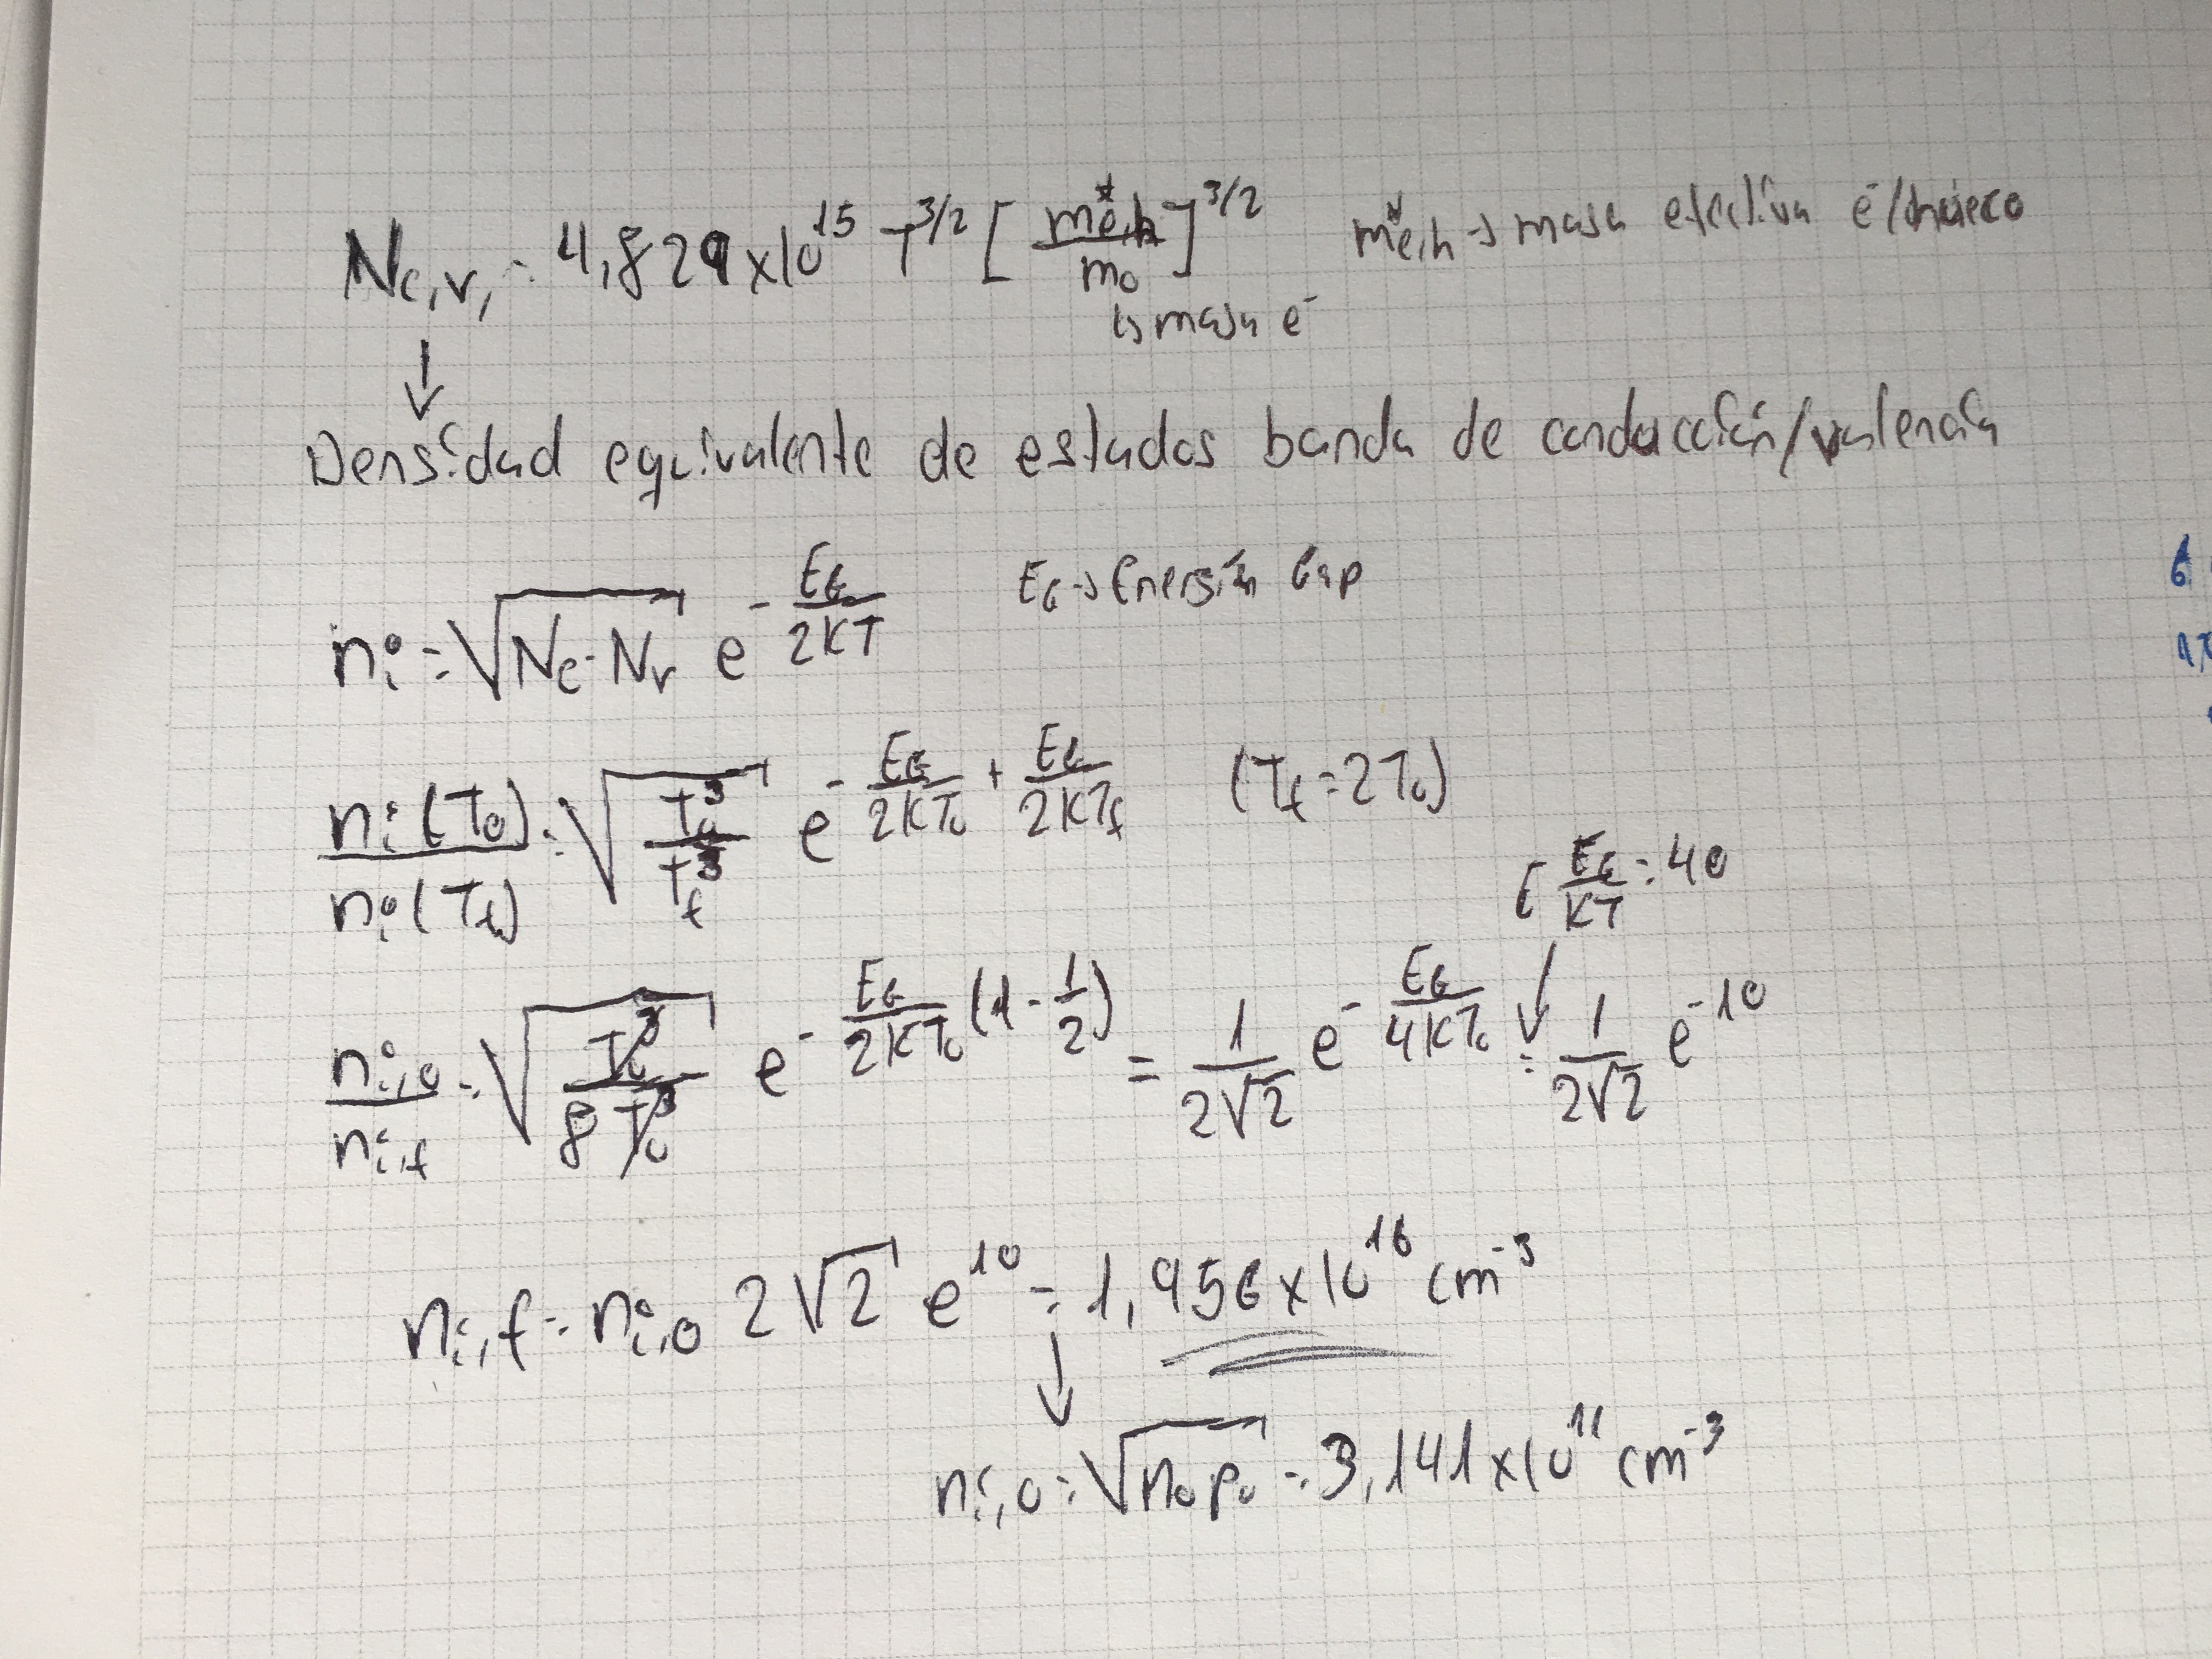 Nc,v, = 4,829x10^15 T^3/2 [m*e,h / m0]^3/2 m*e,h → masa efectiva e-/hueco
↳ masa e-
↓
Densidad equivalente de estados banda de conducción/valencia
ni = √(Nc·Nv) e^(-EG/2KT) EG → Energía Gap
ni(T0)/ni(Tf) = √(T0^3/Tf^3) e^(-EG/2KT0 + EG/2KTf) (Tf=2T0)
[EG/KT = 40
↓
ni,0/ni,f = √(T0^3/8T0^3) e^(-EG/2KT0 (1-1/2)) = 1/2√2 e^(-EG/4KT0) = 1/2√2 e^-10
ni,f = ni,0 2√2 e^10 = 1,956x10^16 cm^-3
↓
ni,0 = √(n0p0) = 3,141x10^11 cm^-3